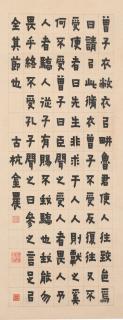 曾子衣敝衣㠯畊魯君使人往致邑焉
曰請㠯此脩衣曾子不受反復往又不
受使者曰先生非求于人人則獻之奚
何不受曾子曰臣聞之受人者畏人予
人者驕人縱君有賜不我驕也我能勿
畏乎終不受孔子聞之曰參之言足㠯
全其節也
古杭金農